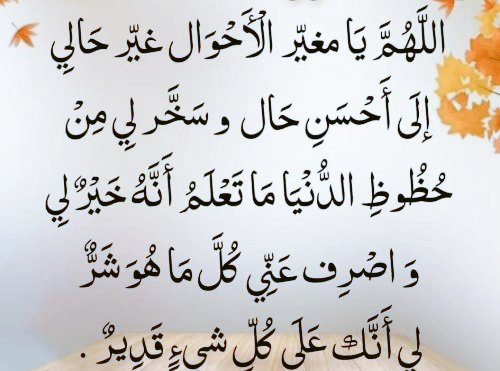 اللَّهُمَّ يَا مغيّر الْأَحْوَال غيّر حَالِي
إلَى أَحْسَنِ حَال و سَخَّر لِي مِنْ
حُظُوظِ الدُّنْيَا مَا تَعْلَمُ أَنَّهُ خَيْرٌ لِي
وَ اصْرِف عَنِّي كُلَّ مَا هُوَ شَرٌّ
لِي أَنَّكَ عَلَى كُلِّ شيءٍ قَدِيرٌ .